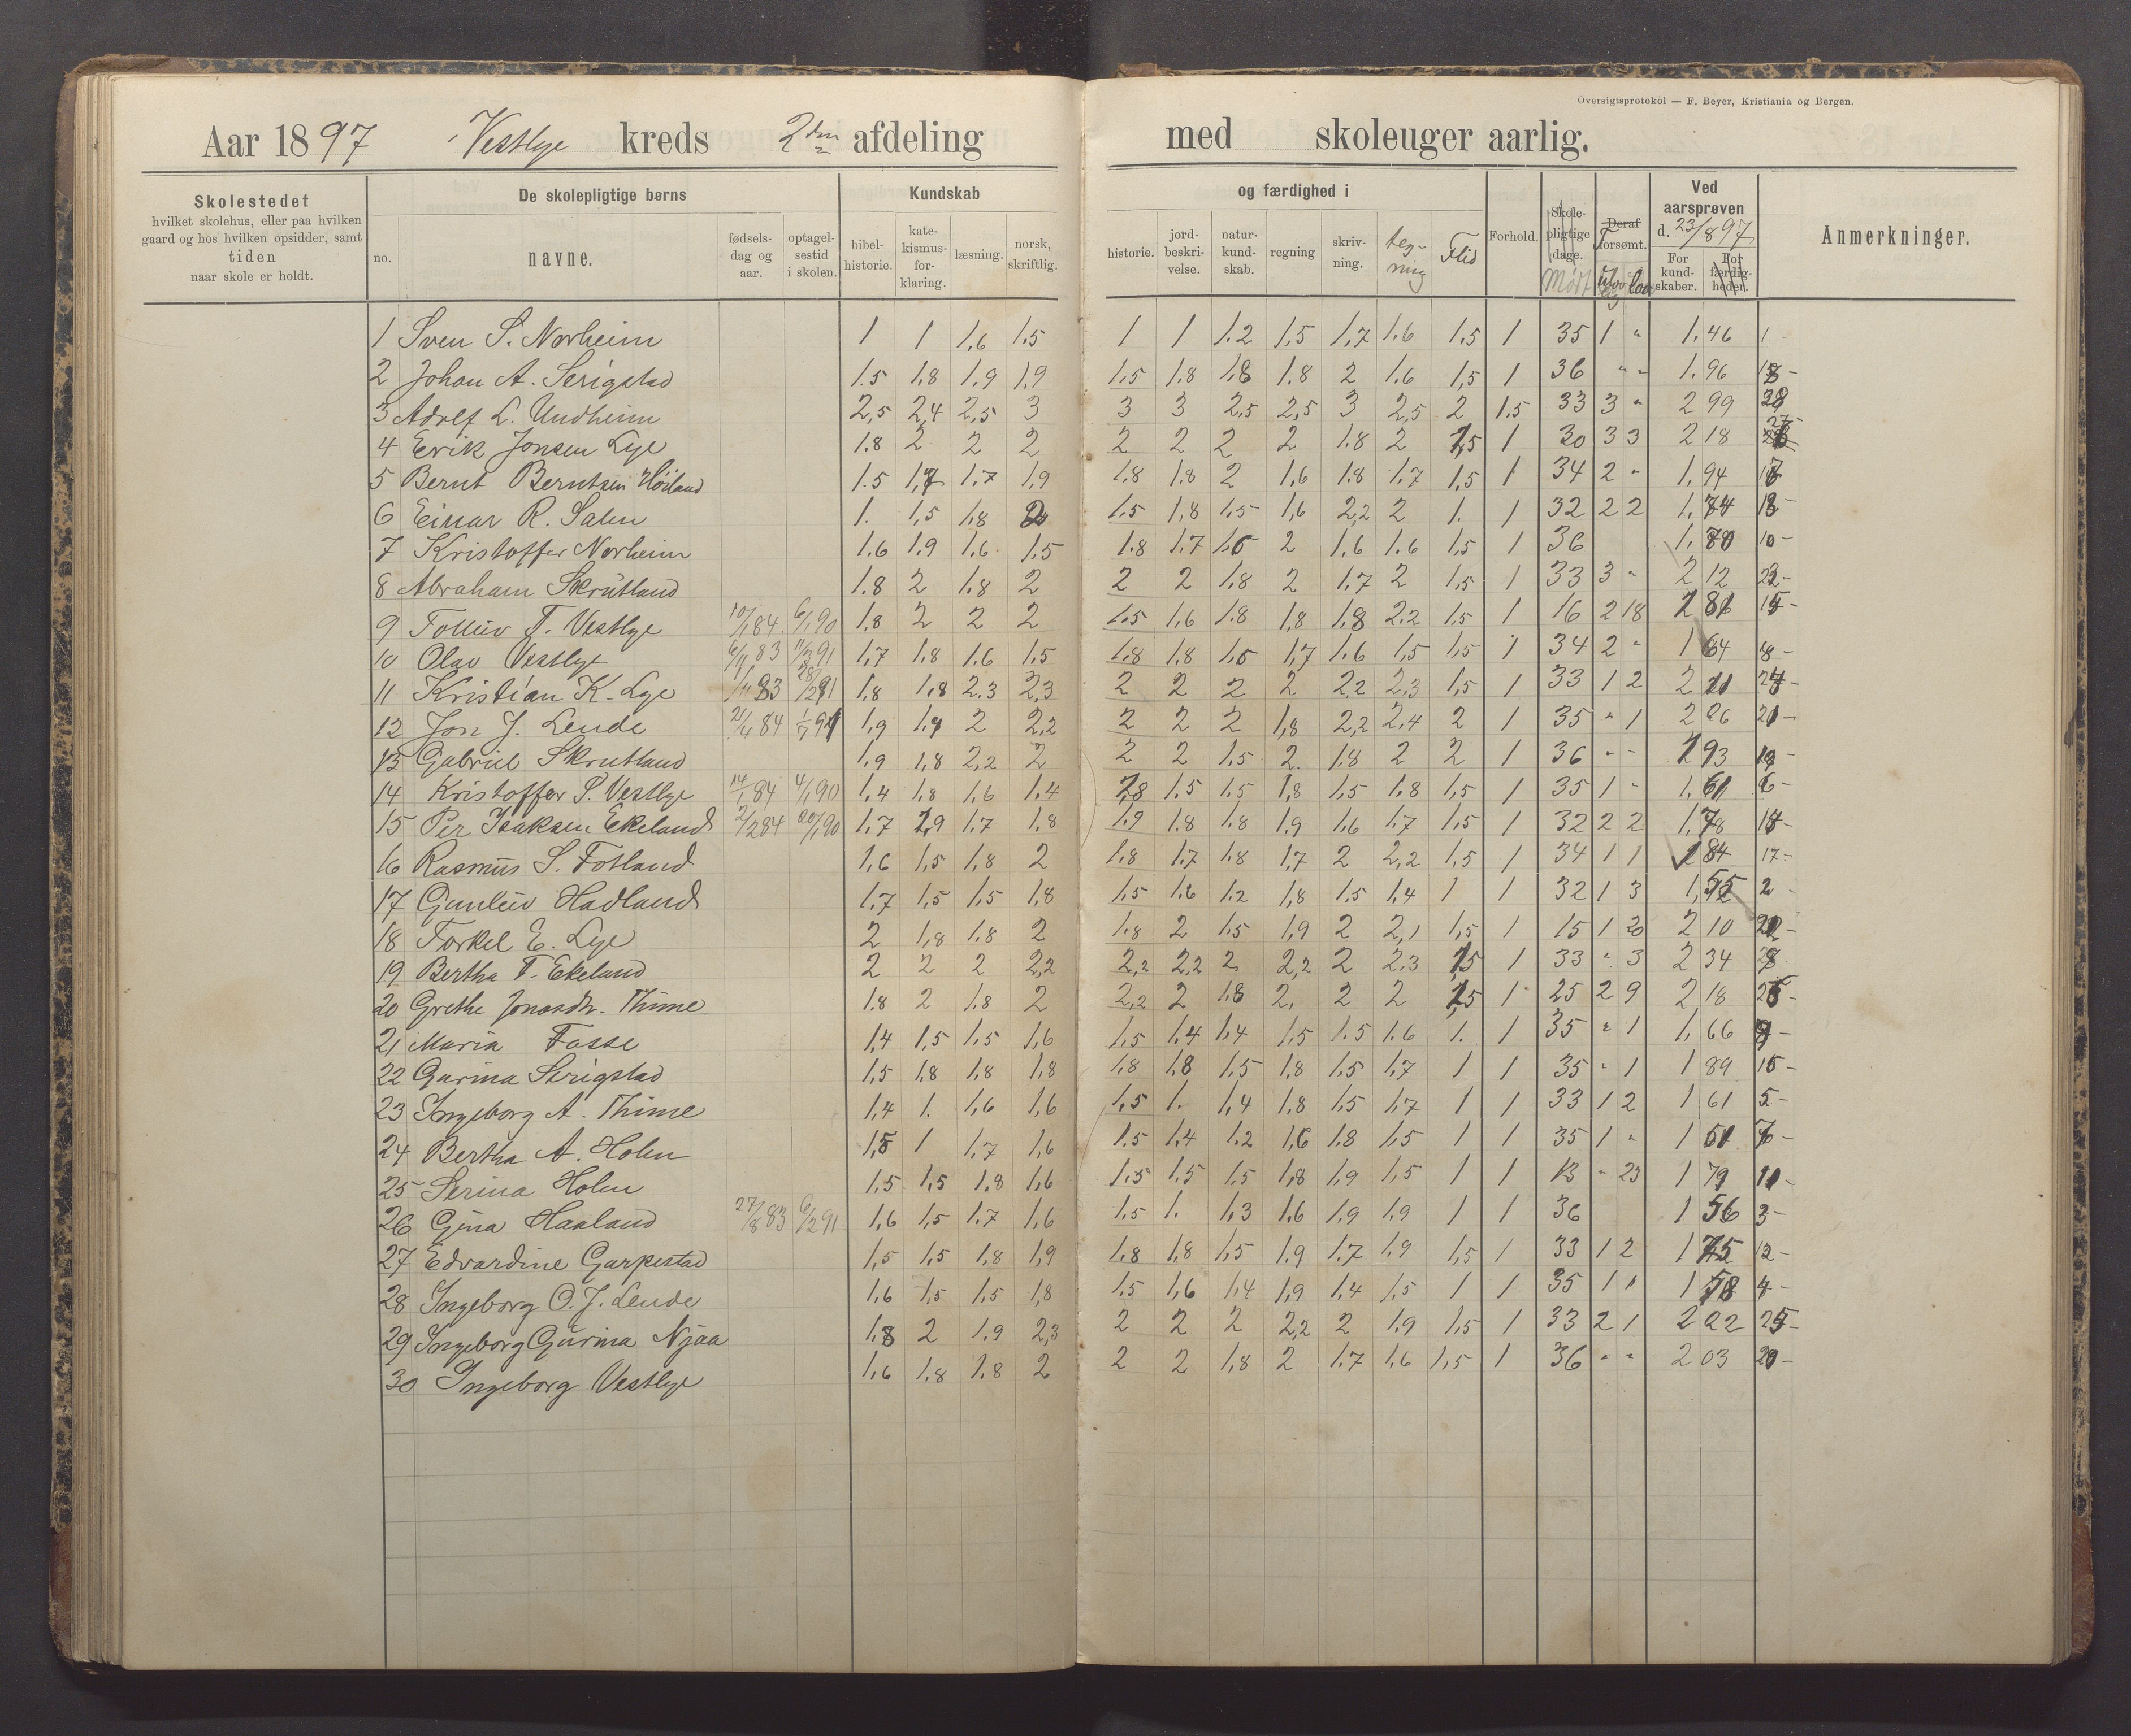 Oversigtsprotokol — F. Beyer, Kristiania og Bergen.
Aar 1897 Vestlye kreds 2den afdeling med skoleuger aarlig.
Skolestedet hvilket skolehus, eller paa hvilken gaard og hos hvilken opsidder, samt tiden naar skole er holdt.
De skolepligtige børns
no. navne. fødsels-dag og aar. optagel-sestid i skolen.
Kundskab og færdighed i
bibel-historie. kate-kismus-for-klaring. læsning. norsk, skriftlig. historie. jord-beskri-velse. natur-kund-skab. regning skriv-ning. teg-ning Flid
Forhold. Skole-pligtige dage. Mødt Deraf forsømt. lov
Ved aarsprøven d. 23/8 97
For kund-skaber. For færdig-heder.
Anmerkninger.
1 Sven S. Norheim 1 1 1,6 1,5 1 1 1.2 1,5 1,7 1.6 1,5 1 35 1 " 1,46 1
2 Johan A. Serigstad 1.5 1,8 1,9 1,9 1,5 1.8 1,8 1.8 2 1.6 1,5 1 36 " " 1.96
3 Adolf L. Undheim 2,5 2,4 2,5 3 3 3 2,5 2,5 3 2,5 2 1.5 33 3 " 2 99
4 Erik Jonsen Lye 1.8 2 2 2 2 2 2 2 1.8 2 1,5 1 30 3 3 2 18
5 Bernt Berntsen Höiland 1.5 1,7 1.7 1,9 1,8 1.8 2 1,6 1.8 1,7 1,5 1 34 2 " 1,94
6 Einar R. Salen 1. 1,5 1,8 2 1.5 1,8 1.5 1,6 2,2 2 1. 1 32 2 2 1,74
7 Kristoffer Norheim 1.6 1.9 1.6 1.5 1.8 1.7 2 1,6 1.6 1,5 1 36 10 -
8 Abraham Skrutland 1.8 2 1.8 2 2 2 1,8 2 1.7 2 1,5 1 33 3 " 2 12
9 Tolleiv T. Vestlye 10/1 84 6/1 90 1,8 2 2 2 1.5 1,6 1.8 1,8 1,8 2.2 1.5 1 16 2 18
10 Olav Vestlye 83 91 1,7 1.8 1.6 1.5 1.8 1,8 1,7 1.6 1,5 1.5 1 34 2 " 1 64 8 -
11 Kristian K. Lye 83 91 1,8 1,8 2.3 2,3 2 2 2 2 2,2 2,3 1,5 1 33 1 2
12 Jon J. Lende 21/4 84 1,9 1,9 2 2,2 2 2 2 1,8 2,2 2,4 2 1 35 " 1
13 Gabriel Skrutland 1,9 1,8 2,2 2 2 2 1.5 2. 1.8 2 2 1 36 " " 1 93
14 Kristoffer P. Vestlye 14/1 84 4/1 90 1,4 1,8 1,6 1.4 1,8 1.5 1.5 1,8 1,5 1,8 1,5 1 35 1 " 1,61 6 -
15 Per Isaksen Ekeland 2/2 84 20/1 90 1,7 1,9 1.7 1.8 1.9 1.8 1.8 1,9 1,6 1.7 1.5 1 32 2 2 1,78
16 Rasmus S. Fotland 1,6 1,5 1,8 2 1.8 1.7 1.8 1,7 2 2,2 1,5 1 34 1 1 1 84 17 -
17 Gunleiv Hadland 1.7 1,5 1,5 1,8 1.5 1.6 1.2 1,8 1.5 1,4 1 1 32 1 3 2 -
18 Torkel E. Lye 2 1,8 1.8 2 1.8 2 1.5 1,9 2 2,1 1,5 1 15 1 20 2 10
19 Bertha T. Ekeland 2 2 2 2,2 2,2 2,2 2 2,2 2 2.3 1,5 1 33 " 3 2 34
20 Grethe Jonasdtr. Thime 1.8 2 1.8 2 2,2 2 1.8 2. 2 2 1,5 1 25 2 9 2 18
21 Maria Fosse 1,4 1,5 1,5 1,6 1,5 1,4 1,4 1,5 1.5 1.6 1. 1 35 " 1 1,66
22 Gurina Serigstad 1,5 1,8 1,8 1,8 1.8 1,8 1,5 1,8 1,5 1,7 1 1 35 " 1 1 89
23 Ingeborg A. Thime 1.4 1. 1,6 1,6 1,5 1. 1,4 1,8 1.5 1,7 1 1 33 1 2 1 61 5 -
24 Bertha A. Holen 1,5 1 1,7 1,6 1.5 1,4 1.2 1,6 1.8 1,5 1 1 35 1 "
25 Serina Holen 1.5 1,5 1.8 1,6 1.5 1.5 1.5 1,8 1,9 1,5 1 1 13 " 23 1 79 11 -
26 Gina Haaland 27/8 83 6/2 91 1,6 1,5 1.7 1,6 1.5 1. 1,3 1.6 1,9 1.9 1 1 36 1 56 3 -
27 Edvardine Garpestad 1,5 1,5 1,8 1,9 1,8 1,8 1,5 1.9 1.7 1,9 1,5 1 33 1 2 1 75 12 -
28 Ingeborg O. J. Lende 1.6 1,5 1.5 1,8 1.5 1,6 1,4 1,9 1.4 1,5 1 1 35 1 " 1 58 4 -
29 Ingeborg Gurina Njaa 1,8 2 1.9 2,3 2 2 2 2,2 2 1.9 1,5 1 33 2 1 2 22
30 Ingeborg Vestlye 1.6 1,8 1.8 2 2 2 1,8 2 1.7 1,6 1,5 1 36 " " 2 03 20 -